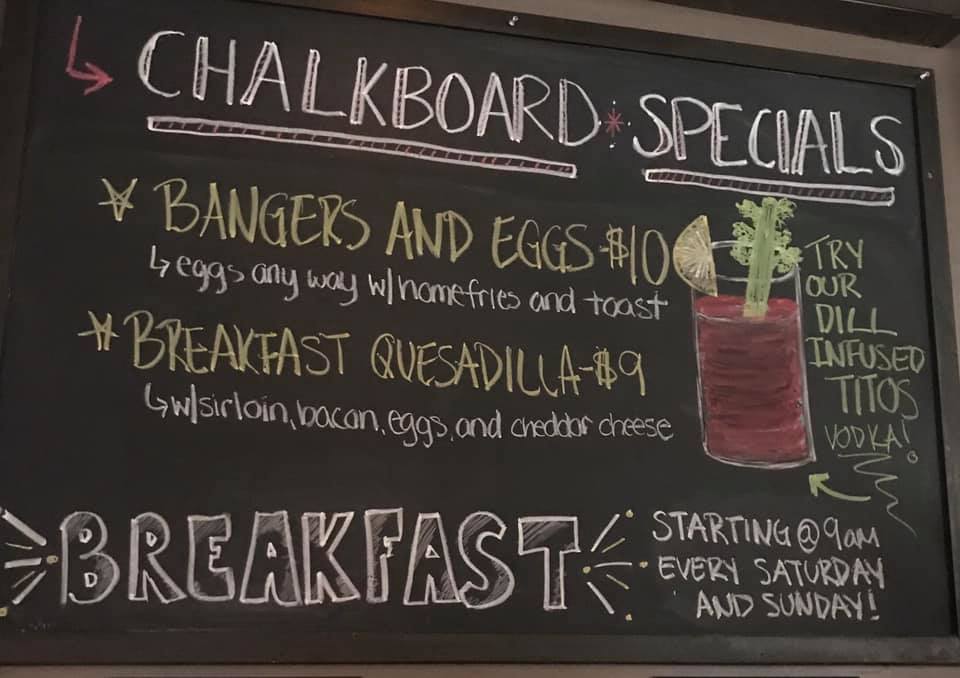 CHALKBOARD * SPECIALS
BANGERS AND EGGS-$10
eggs any way w/homefries and toast
BREAKFAST QUESADILLA-$9
w/sirloin, bacan, eggs, and cheddar cheese
TRY
OUR
DILL
INFUSED
TITOS
VODKA!
BREAKFAST
STARTING @ 9am
EVERY SATURDAY
AND SUNDAY!